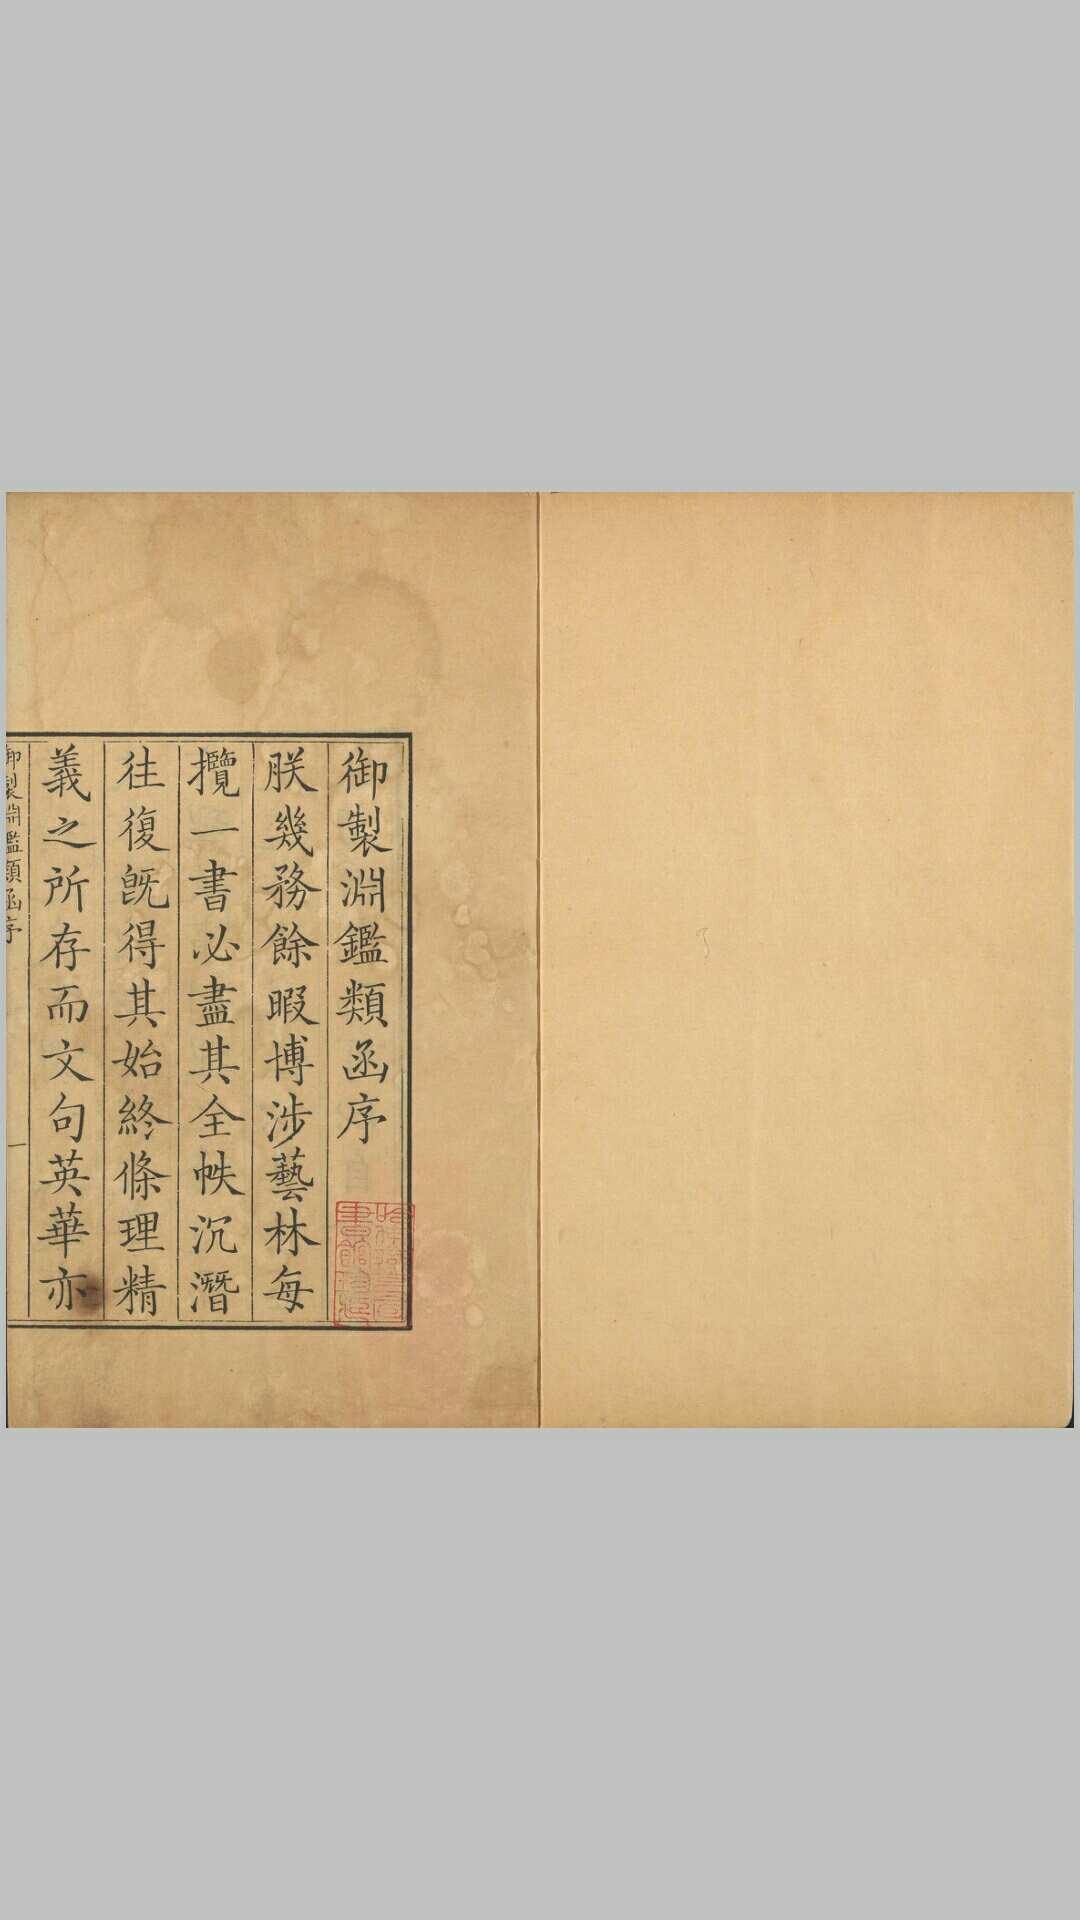 御製淵鑑類函序
朕幾務餘暇博涉藝林每
攬一書必盡其全帙沉潛
往復旣得其始終條理精
義之所存而文句英華亦
御製淵鑑類函序
一